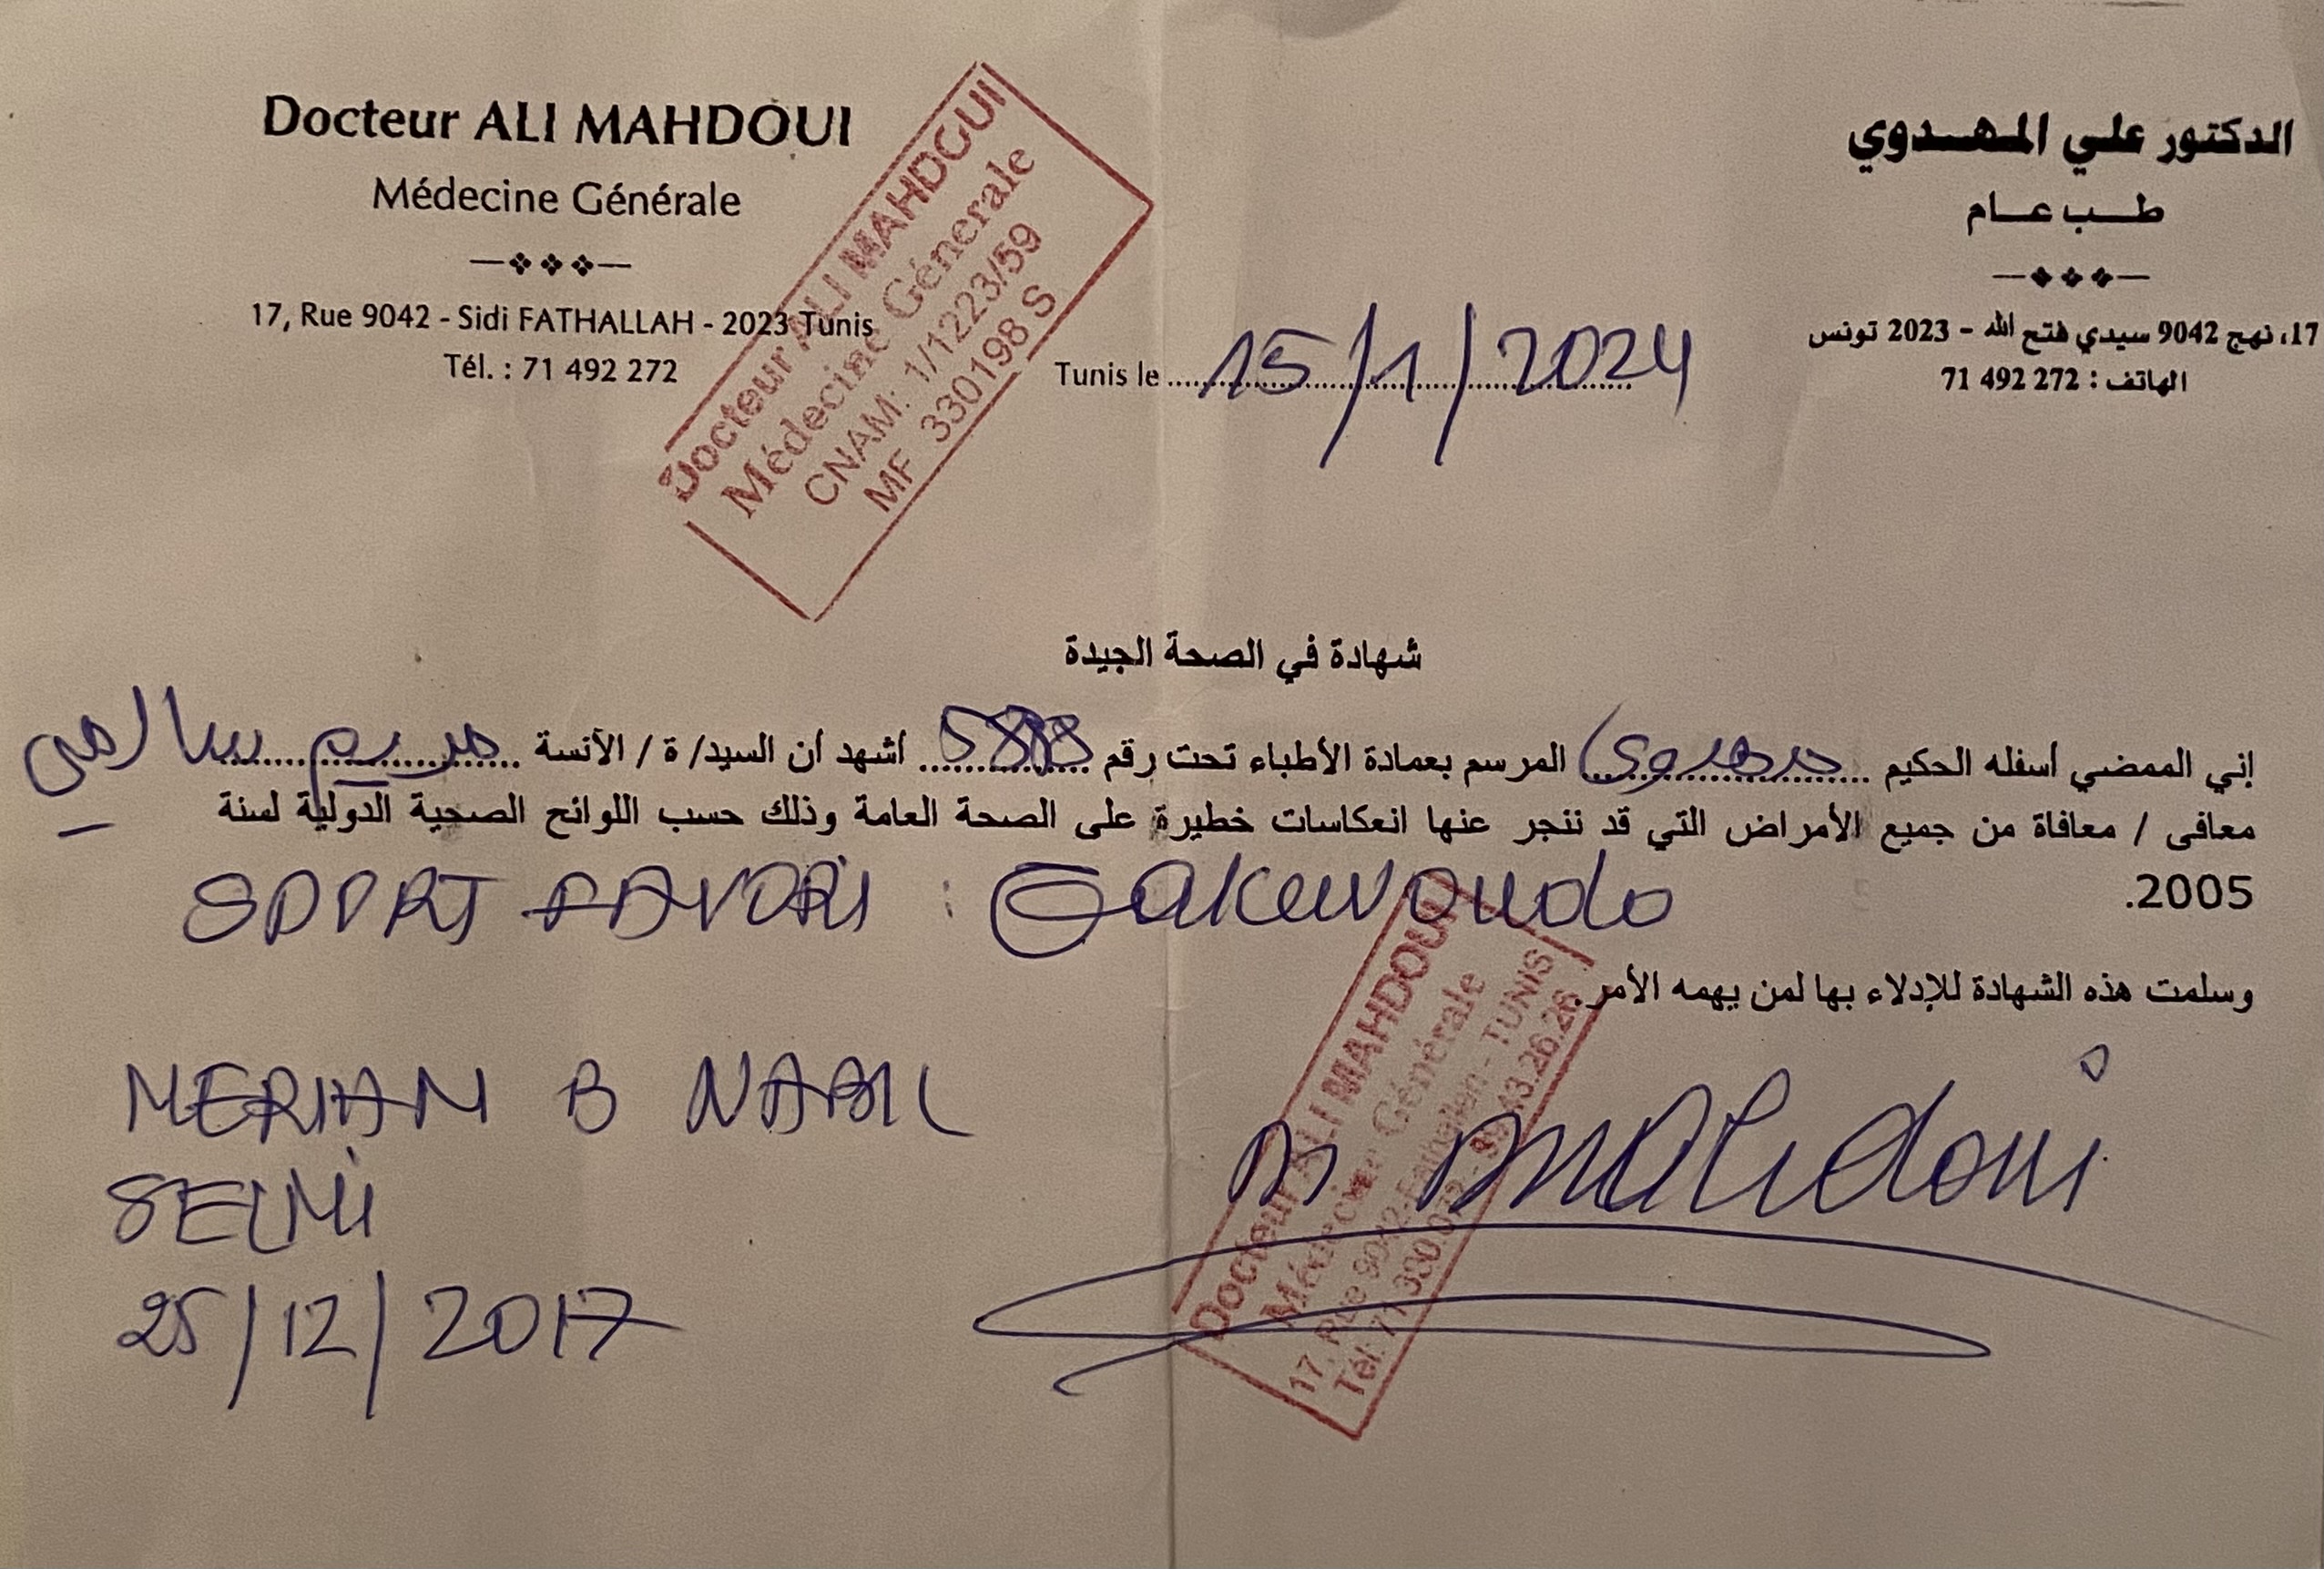 Docteur ALI MAHDOUI
Médecine Générale
17, Rue 9042 - Sidi FATHALLAH - 2023 Tunis
Tél. : 71 492 272
الدكتور علي المهدوي
طب عام
17، نهج 9042 سيدي فتح الله - 2023 تونس
الهاتف : 272 492 71
Docteur ALI MAHDOUI
Médecine Générale
CNAM: 1/1223/59
MF 330198 S
Tunis le 15/1/2024
شهادة في الصحة الجيدة
إني الممضي أسفله الحكيم مهدوي المرسم بعمادة الأطباء تحت رقم أشهد أن السيد/ ة / الآنسة مريم سالمي
معافى / معافاة من جميع الأمراض التي قد ننجر عنها انعكاسات خطيرة على الصحة العامة وذلك حسب اللوائح الصحية الدولية لسنة
2005.
SPORT FAVORI : Taekwondo
وسلمت هذه الشهادة للإدلاء بها لمن يهمه الأمر.
MERIAM B NABIL
SELMI
25/12/2017
Dr Mahdoui
Docteur ALI MAHDOUI
Médecine Générale
17, Rue 9042 - Fathallah - TUNIS
Tél: 71